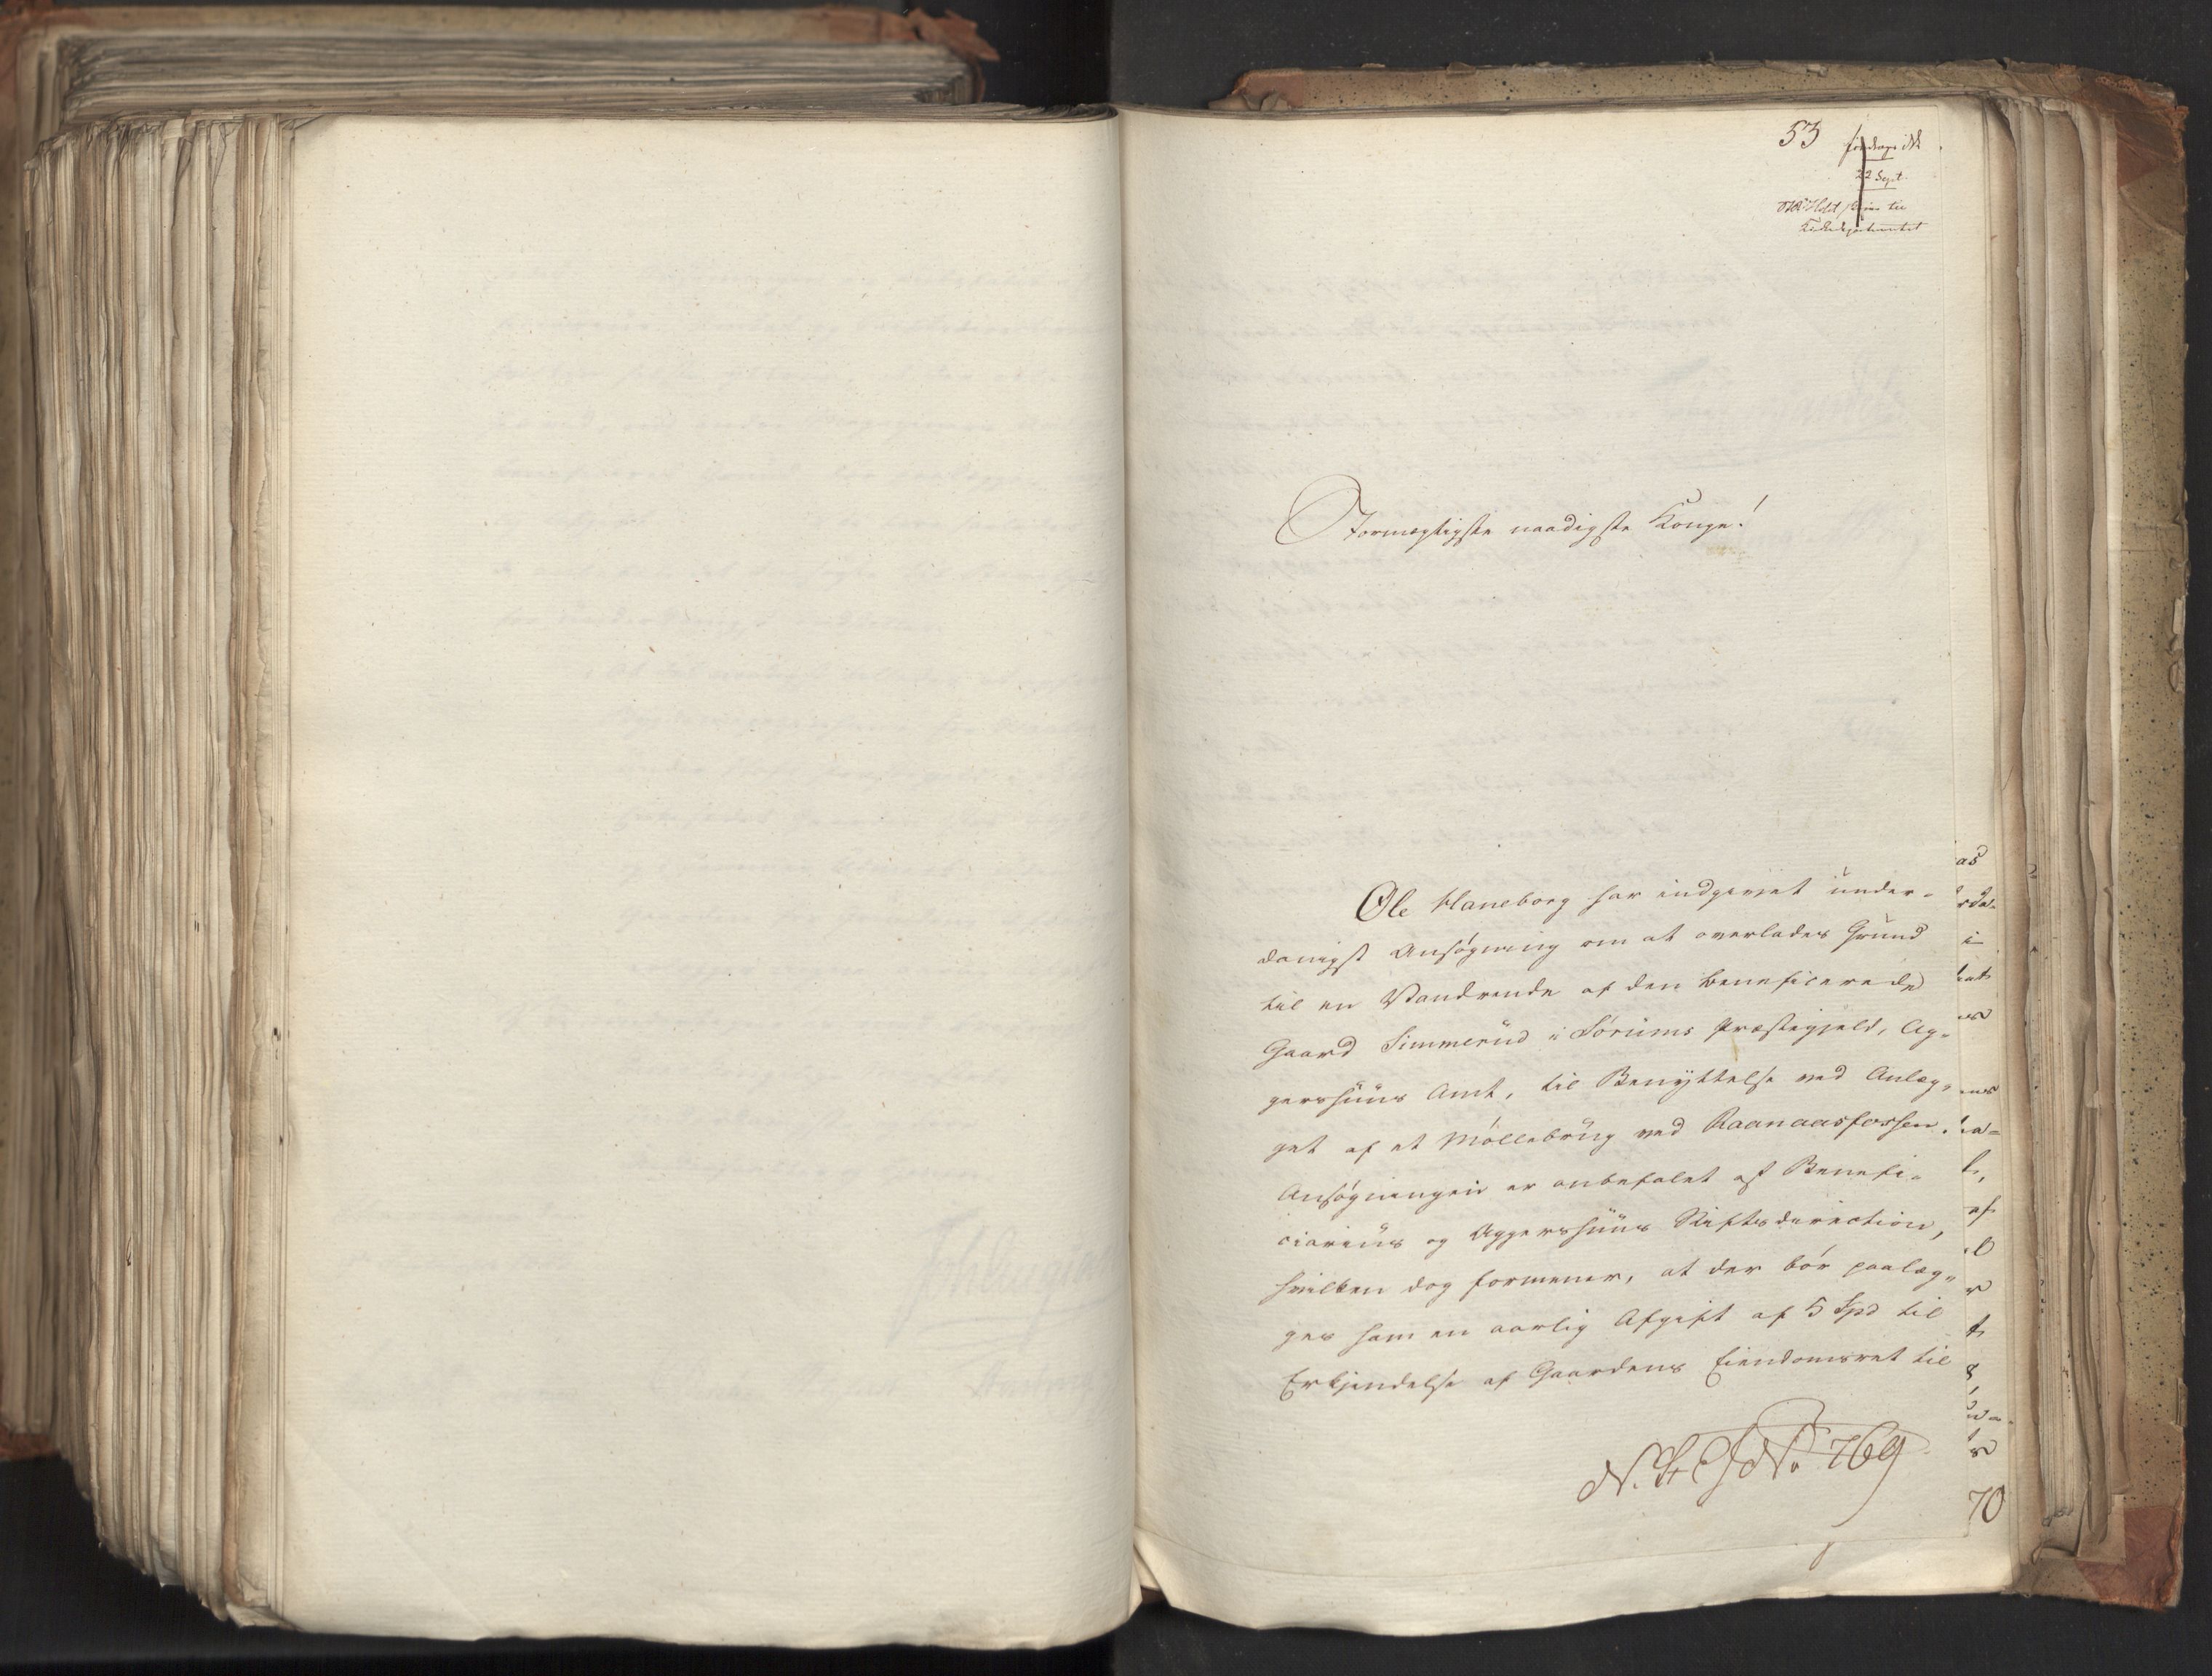 53 foredrages ikke
22 Sept.
til
Kirkedepartementet
Stormægtigste naadigste Konge!
Ole Haneborg har indgivet under-
danigst Ansøgning om at overlades Grund
til en Vandrende af den beneficerede
Gaard Simmerud i Sørums Præstegjeld, Ag-
gershuus Amt, til Benyttelse ved Anlæg-
get af et Møllebrug ved Raanaasfossen.
Ansøgningen er anbefalet af Benefi-
ciarius og Aggershuus Stiftsdirection,
hvilken dog formener, at der bør paalæg-
ges ham en aarlig Afgift af 5 Spd til
Erkjendelse af Gaardens Eiendomsret til
No 769
70